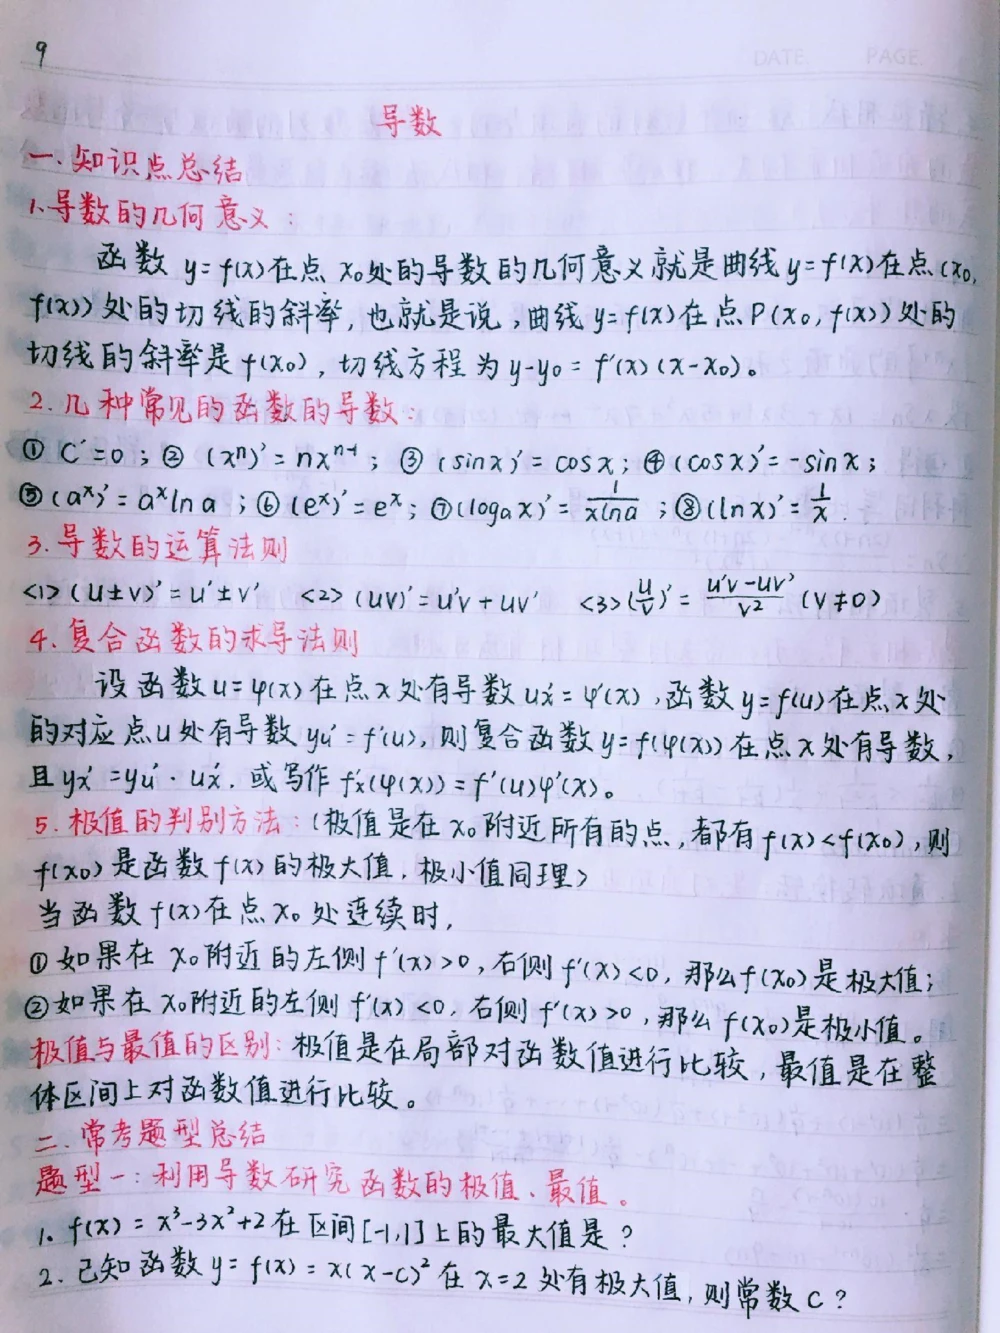 9
DATE. PAGE.
导数
一.知识点总结
1.导数的几何意义：
函数 y=f(x)在点 x₀处的导数的几何意义就是曲线y=f(x)在点(x₀,
f(x))处的切线的斜率,也就是说,曲线y=f(x)在点P(x₀,f(x))处的
切线的斜率是f(x₀),切线方程为y-y₀=f'(x)(x-x₀)。
2.几种常见的函数的导数:
① C'=0；② (xⁿ)'=nxⁿ⁻¹；③ (sinx)'=cosx；④(cosx)'=-sinx；
⑤(aˣ)'=aˣlna；⑥(eˣ)'=eˣ；⑦(logₐx)'=1/xlna；⑧(lnx)'=1/x.
3.导数的运算法则
<1>(u±v)'=u'±v' <2>(uv)'=u'v+uv' <3>(u/v)'=u'v-uv'/v² (v≠0)
4.复合函数的求导法则
设函数u=φ(x)在点x处有导数ux'=φ'(x),函数y=f(u)在点x处
的对应点u处有导数yu'=f'(u),则复合函数y=f(φ(x))在点x处有导数,
且yx'=yu'·ux',或写作fx'(φ(x))=f'(u)φ'(x)。
5.极值的判别方法:(极值是在x₀附近所有的点,都有f(x)<f(x₀),则
f(x₀)是函数f(x)的极大值,极小值同理>
当函数f(x)在点x₀处连续时,
①如果在x₀附近的左侧f'(x)>0,右侧f'(x)<0,那么f(x₀)是极大值;
②如果在x₀附近的左侧f'(x)<0,右侧f'(x)>0,那么f(x₀)是极小值。
极值与最值的区别:极值是在局部对函数值进行比较,最值是在整
体区间上对函数值进行比较。
二.常考题型总结
题型一:利用导数研究函数的极值、最值。
1. f(x)=x³-3x²+2在区间[-1,1]上的最大值是?
2.已知函数y=f(x)=x(x-c)²在x=2处有极大值,则常数c?